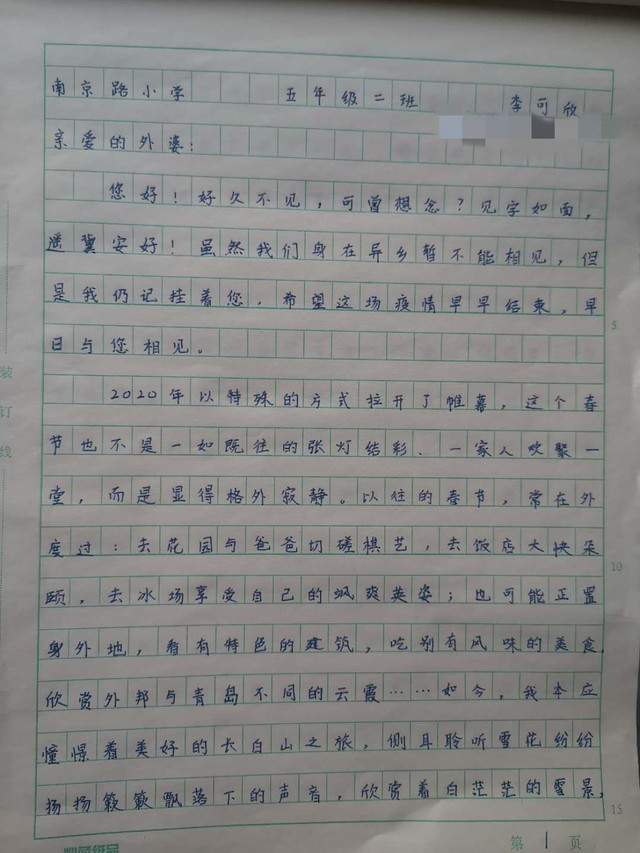 南京路小学 五年级二班 李可欣
亲爱的外婆:
您好!好久不见,可曾想念?见字如面,
遥冀安好!虽然我们身在异乡暂不能相见,但
是我仍记挂着您,希望这场疫情早早结束,早
5
日与您相见。
装
2020年以特殊的方式拉开了帷幕,这个春
订
节也不是一如既往的张灯结彩、一家人欢聚一
线
堂,而是显得格外寂静。以往的春节,常在外
度过:去花园与爸爸切磋棋艺,去饭店大快朵
10
颐,去冰场享受自己的飒爽英姿;也可能正置
身外地,看有特色的建筑,吃别有风味的美食,
欣赏外邦与青岛不同的云霞……如今,我本应
憧憬着美好的长白山之旅,侧耳聆听雪花纷纷
扬扬簌簌飘落下的声音,欣赏着白茫茫的雪景,
15
第 1 页